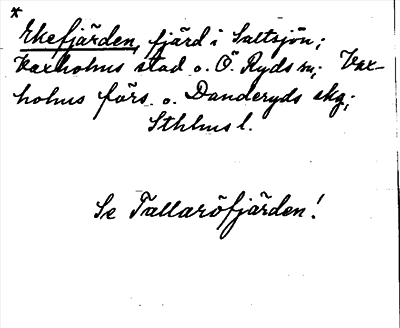 *
Ekefjärden, fjärd i Saltsjön;
Vaxholms stad o. Ö. Ryds sn; Vax-
holms förs. o. Danderyds skg;
Sthlms l.
Se Tallaröfjärden!